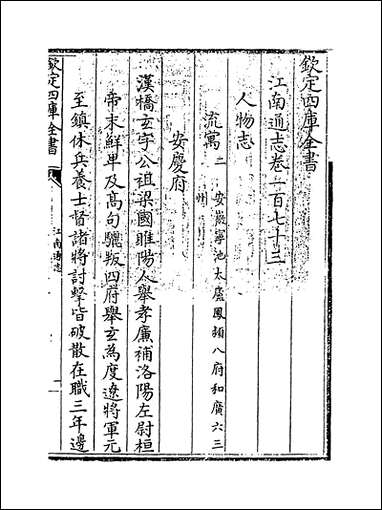 欽定四庫全書
江南通志卷一百七十三
人物志
流寓二
安徽寧池太廬鳳潁八府和廣六三
州
安慶府
漢橋玄字公祖梁國睢陽人舉孝廉補洛陽左尉桓
帝末鮮卑及高句驪叛四府舉玄為度遼將軍元
至鎮休兵養士督諸將討擊皆破散在職三年邊
欽定四庫全書
江南通志